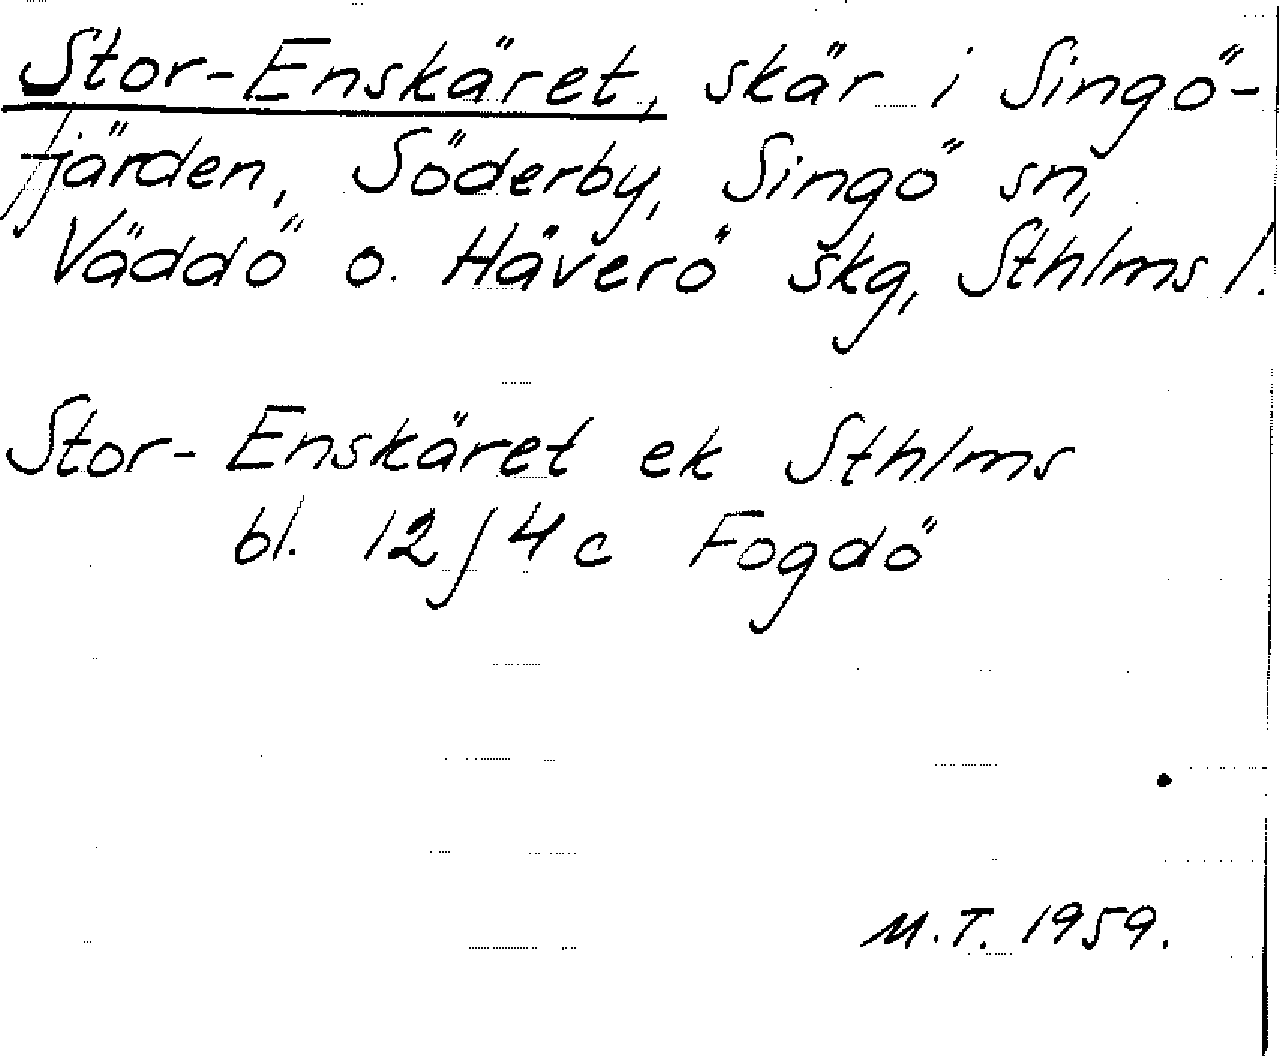 Stor-Enskäret, skär i Singö-
fjärden, Söderby, Singö sn,
Väddö o. Häverö skg, Sthlms l.
Stor-Enskäret ek Sthlms
bl. 12 J 4 c Fogdö
M.T. 1959.